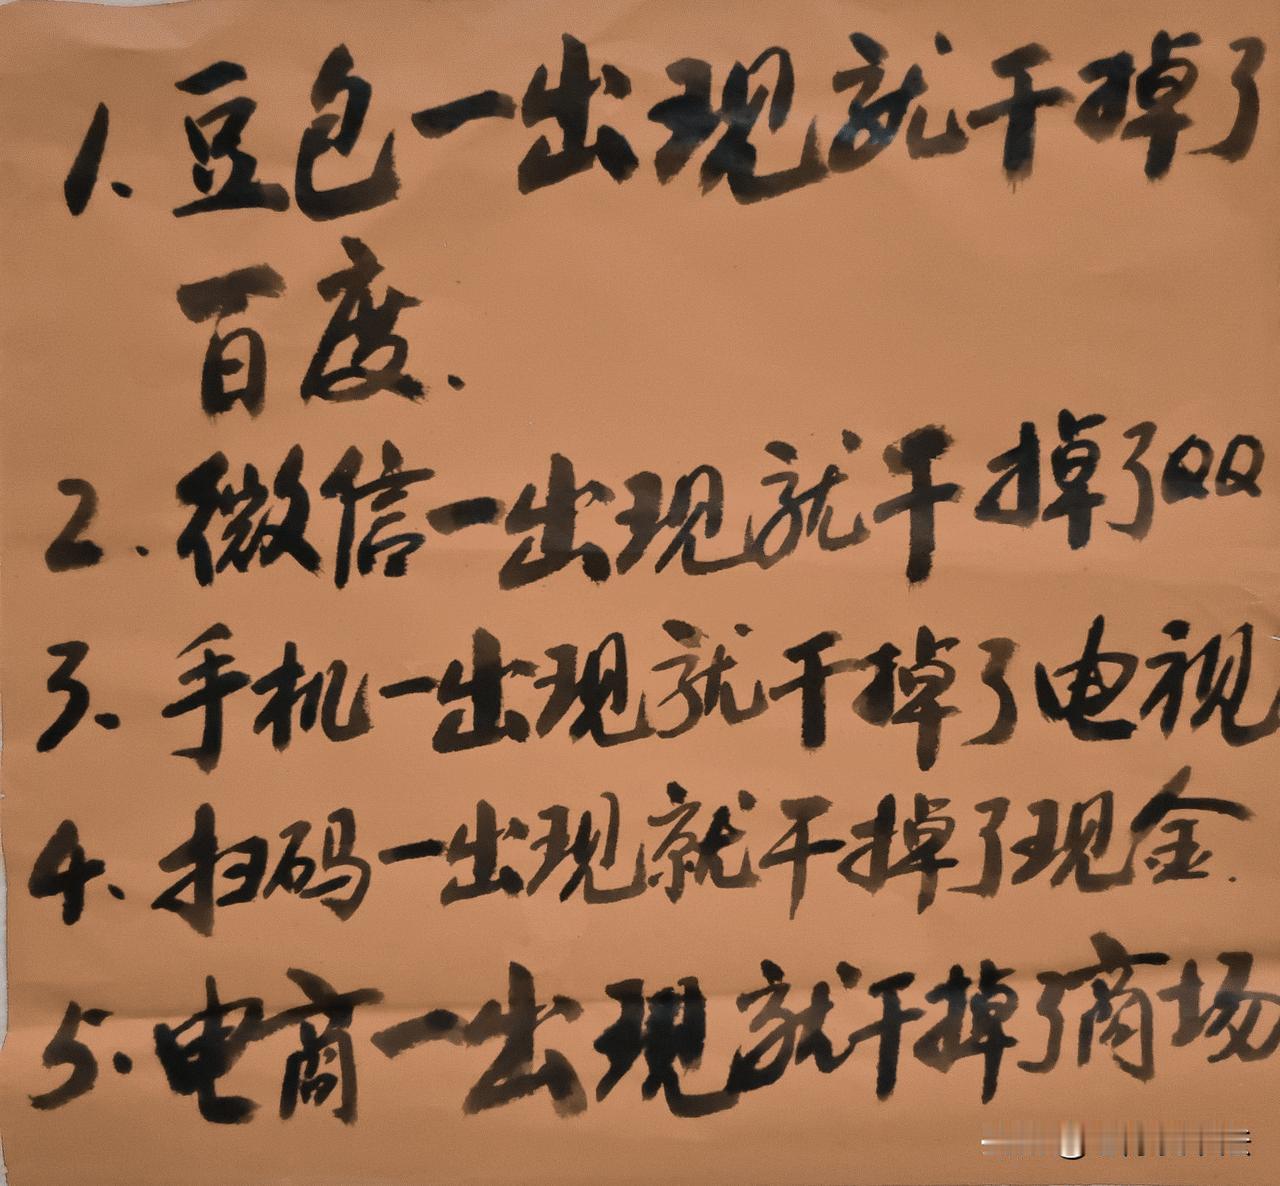 1. 豆包一出现就干掉了
百度.
2. 微信一出现就干掉了QQ
3. 手机一出现就干掉了电视
4. 扫码一出现就干掉了现金.
5. 电商一出现就干掉了商场